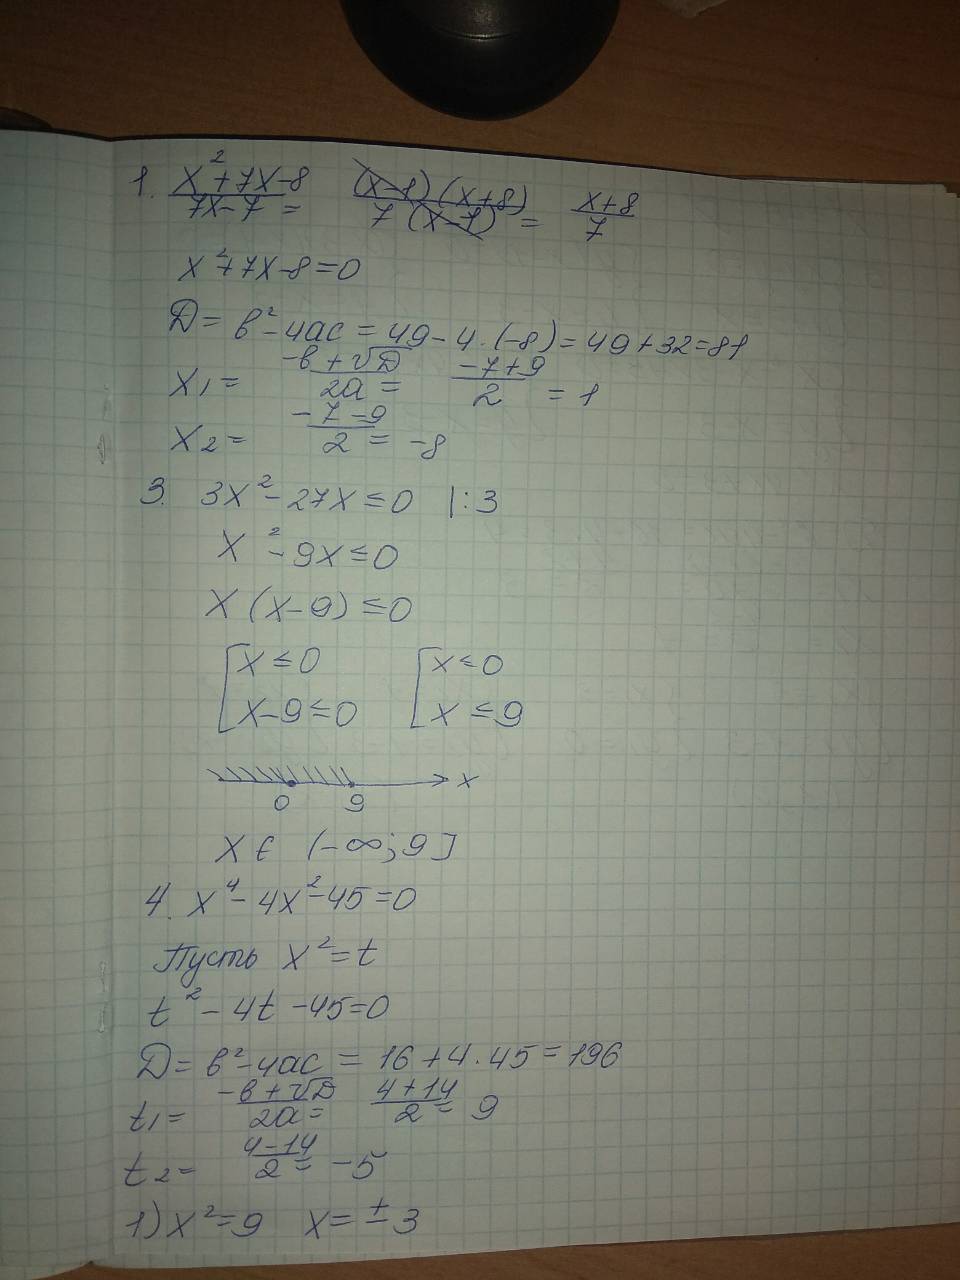 1. x²+7x-8/7x-7 = (x-1)(x+8)/7(x-1) = x+8/7
x²+7x-8=0
D= b²-4ac = 49-4·(-8)=49+32=81
x₁= -b+√D/2a = -7+9/2 = 1
x₂= -7-9/2 = -8
3. 3x²-27x≤0 |:3
x²-9x≤0
x(x-9)≤0
[x≤0 [x≤0
[x-9≤0 [x≤9
0 9 x
x ∈ (-∞;9]
4. x⁴-4x²-45=0
Пусть x²=t
t²-4t-45=0
D= b²-4ac = 16+4·45=196
t₁= -b+√D/2a = 4+14/2 = 9
t₂= 4-14/2 = -5
1) x²=9 x=±3